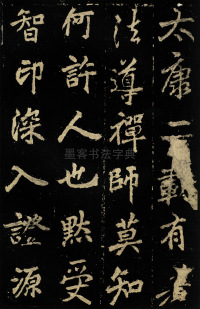 太康二載有若
法導禪師莫知
何許人也默受
智印深入證源
墨客书法字典